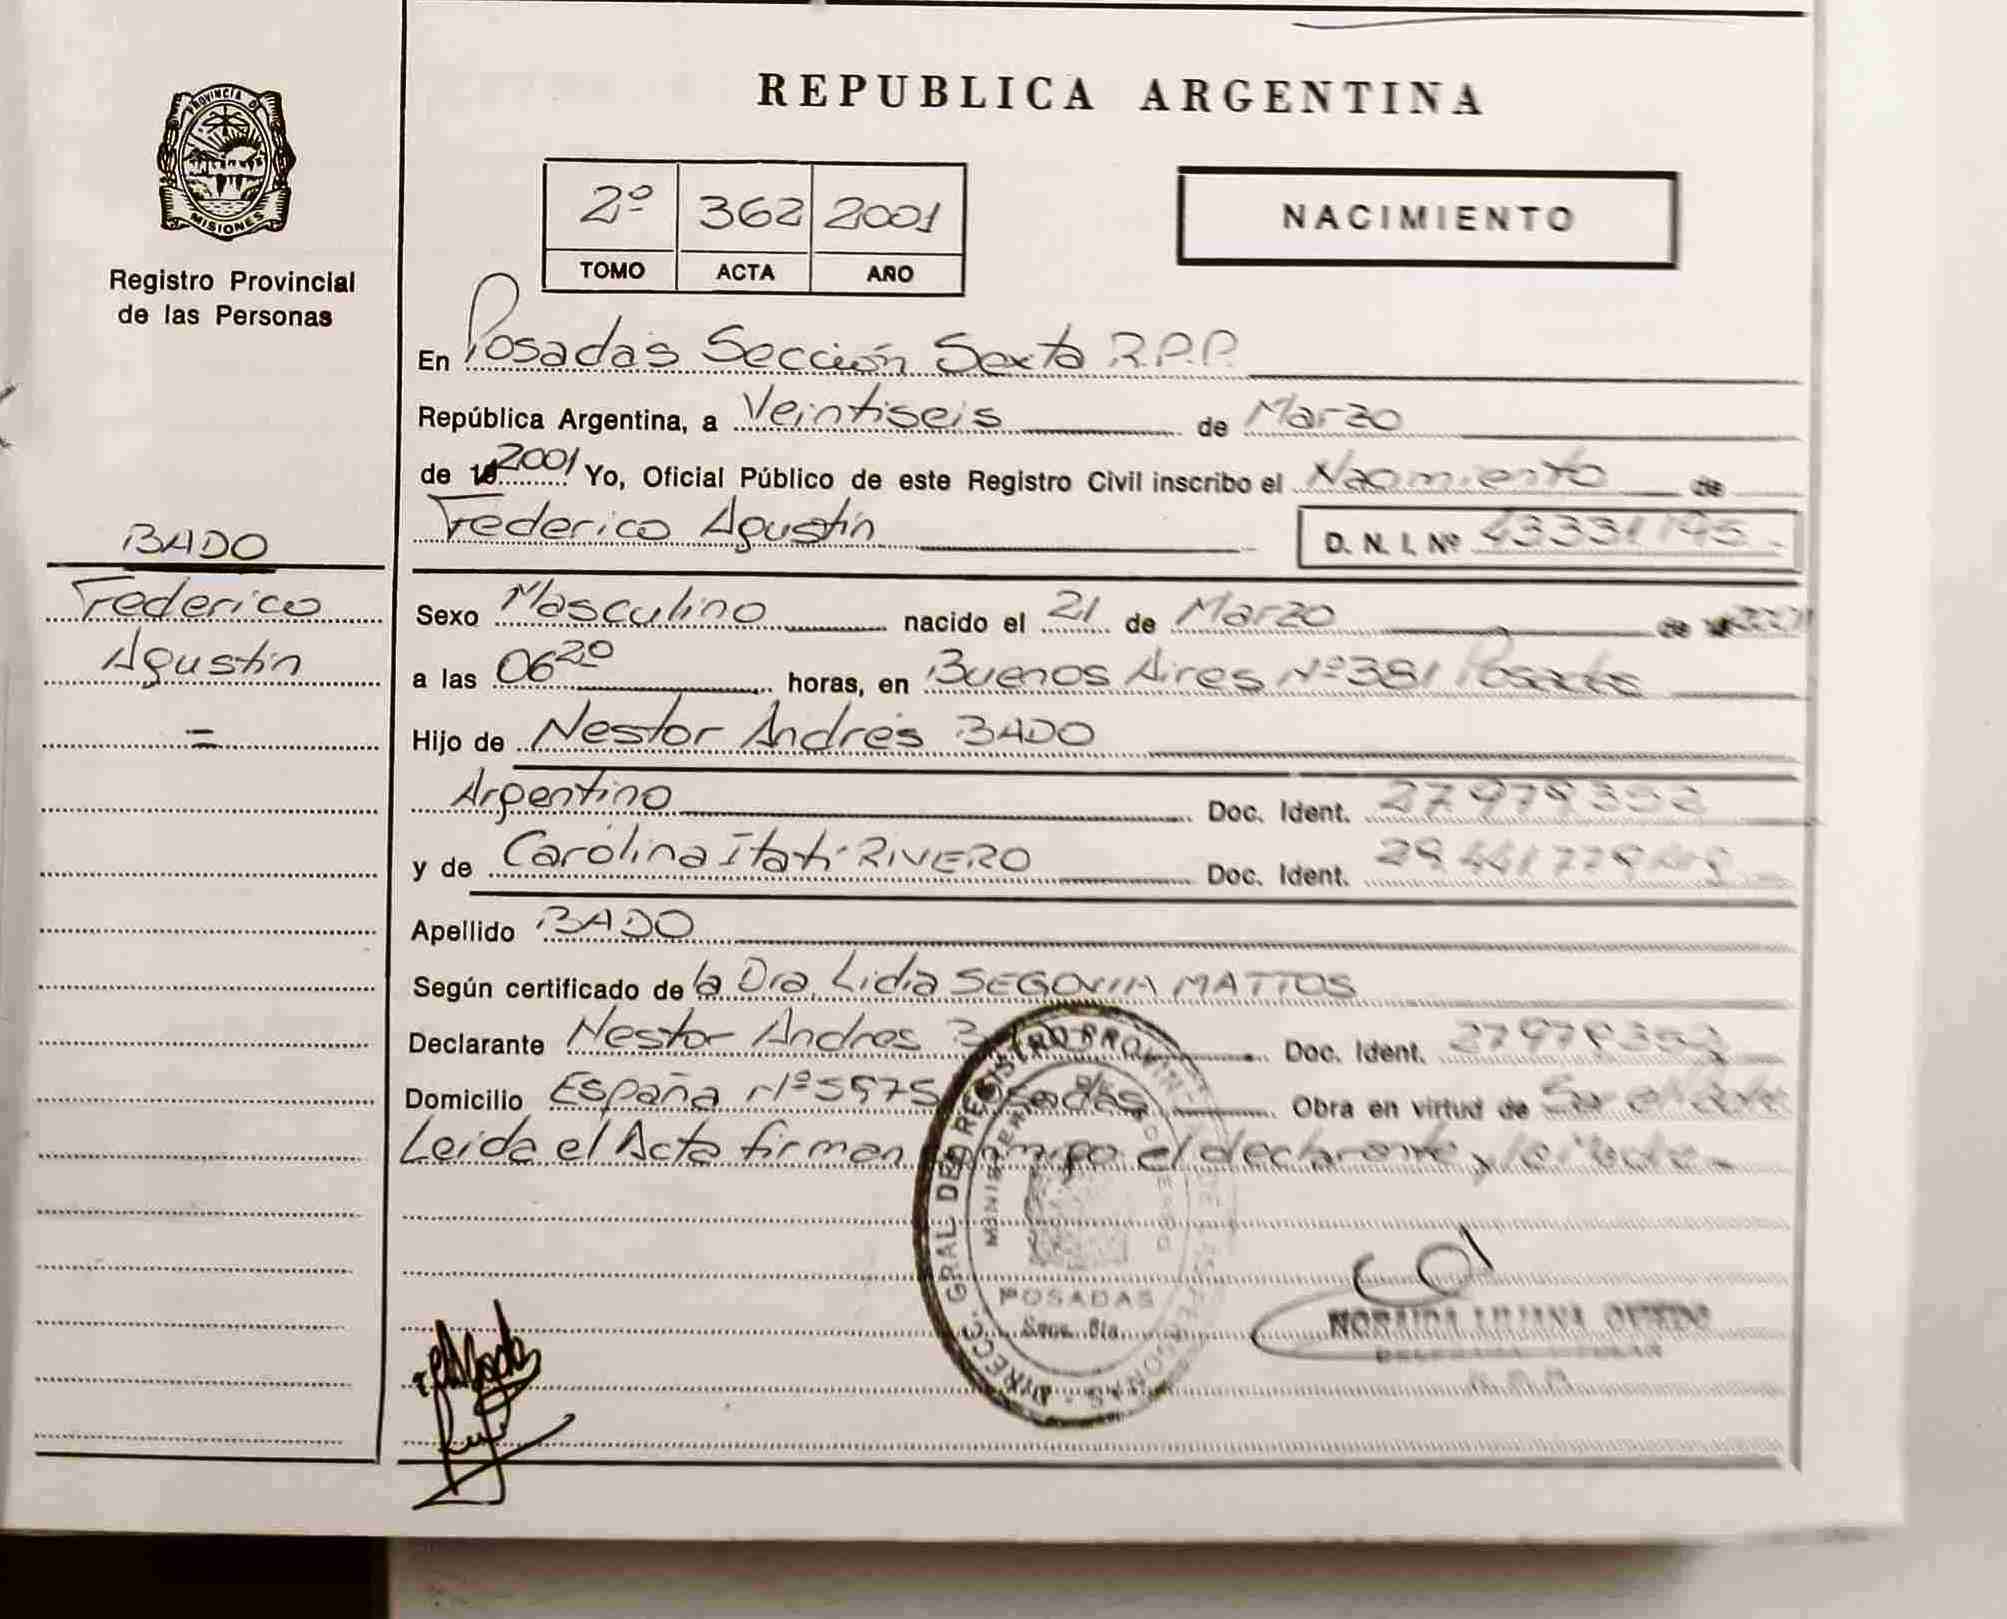 PROVINCIA DE
MISIONES
Registro Provincial
de las Personas
BADO
Federico
Agustín
=
REPUBLICA ARGENTINA
2º 362 2001
TOMO ACTA AÑO
NACIMIENTO
En Posadas Sección Sexta R.P.P.
República Argentina, a Veintiseis de Marzo
de 2001 Yo, Oficial Público de este Registro Civil inscribo el Nacimiento de
Federico Agustín D. N. I. Nº
Sexo Masculino nacido el 21 de Marzo de 2001
a las 06 20 horas, en Buenos Aires Nº 381 Posadas
Hijo de Nestor Andrés BADO
Argentino Doc. Ident.
y de Carolina Itatí RIVERO Doc. Ident.
Apellido BADO
Según certificado de la Dra. Lidia SEGOVIA MATTOS
Declarante Nestor Andres Doc. Ident.
Domicilio España Nº 5575 Posadas Obra en virtud de
Leida el Acta firman conmigo el declarante y la Madre
DIRECC. GRAL DEL REGISTRO PROVINCIAL DE LAS PERSONAS
POSADAS
Secc. 6ta.
NORAIDA LILIANA OVIEDO
DELEGADA TITULAR